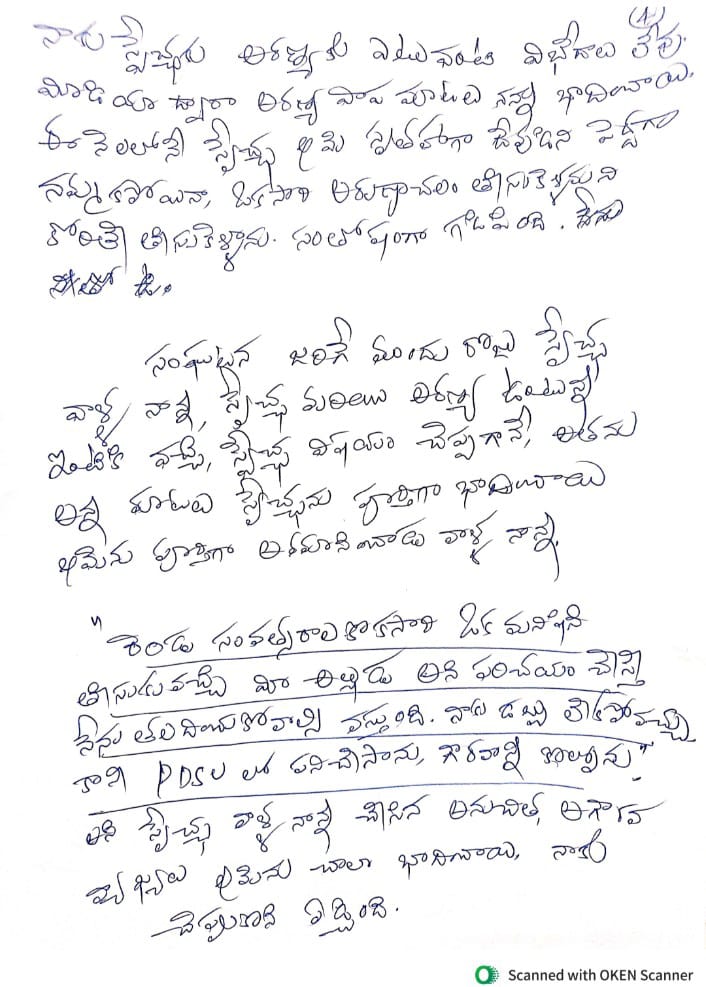 (4)
నాకు స్వేచ్ఛకు అరణ్యకు ఎటువంటి విభేదాలు లేవు.
మీడియా ద్వారా అరణ్య పాప మాటలు నన్ను భాదించాయి.
ఈ నెలలోనే స్వేచ్ఛ ఆమె స్వతహాగా దేవుడిని పెద్దగా
నమ్మకపోయినా, ఒకసారి అరుణాచలం తీసుకెళ్లమని
కోరితే తీసుకెళ్ళాను. సంతోషంగా గడిపింది. నేను
సంఘటన జరిగే ముందు రోజు స్వేచ్ఛ
వాళ్ళ నాన్న, స్వేచ్ఛ మరియు అరణ్య ఉంటున్న
ఇంటికి వచ్చి, స్వేచ్ఛ విషయం చెప్పగానే, అతను
అన్న మాటలు స్వేచ్ఛను పూర్తిగా భాదించాయి
ఆమెను పూర్తిగా అవమానించాడు వాళ్ళ నాన్న.
"రెండు సంవత్సరాలకొకసారి ఒక మనిషిని
తీసుకువచ్చి మీ అల్లుడు అని పరిచయం చేస్తే
నేను తలదించుకోవాల్సి వస్తుంది. నాకు డబ్బు లేకపోవచ్చు
కాని PDSU లో పనిచేసాను, గౌరవాన్ని కోల్పోను"
అని స్వేచ్ఛ వాళ్ళ నాన్న చేసిన అనుచిత, అగౌరవ
వ్యాఖ్యలు ఆమెను చాలా భాదించాయి. నాకు
చెప్పుకొని ఏడ్చింది.
Scanned with OKEN Scanner